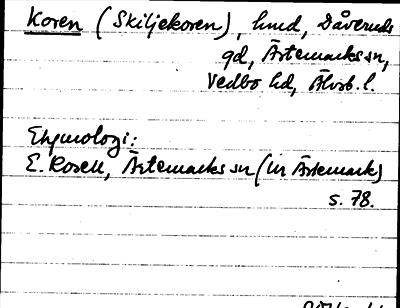 Koren (Skiljekoren), hmd, Dåveruds
gd, Ärtemarks sn,
Vedbo hd, Älvsb. l.
Etymologi:
E. Rosell, Ärtemarks sn (in Ärtemark)
s. 78.